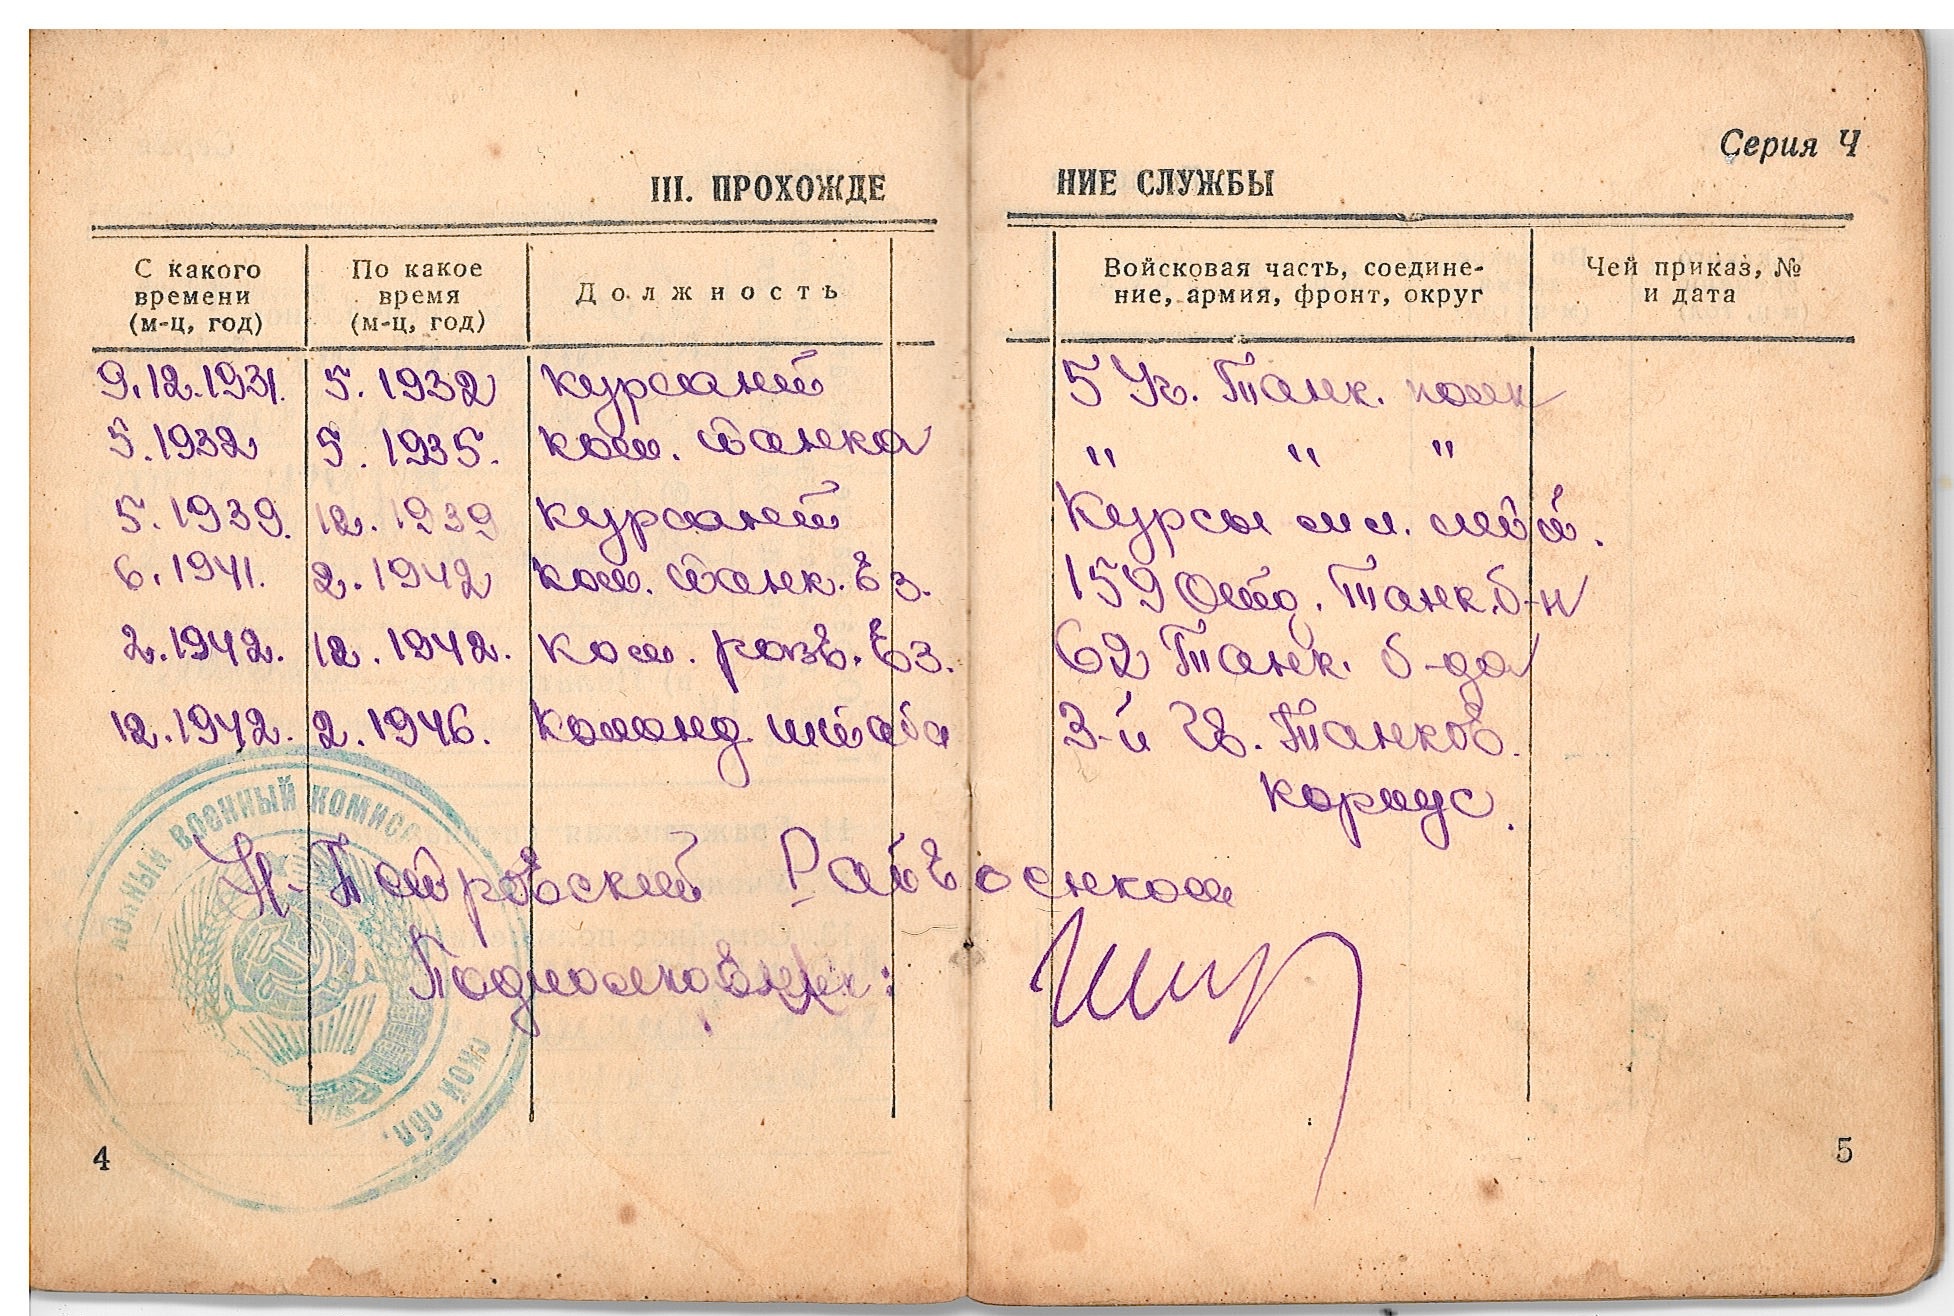 Серия Ч
III. ПРОХОЖДЕ НИЕ СЛУЖБЫ
С какого времени (м-ц, год) По какое время (м-ц, год) Должность Войсковая часть, соедине- ние, армия, фронт, округ Чей приказ, № и дата
9.12.1931. 5.1932 курсант 5 Уч. Танк. полк
5.1932 5.1935. ком. танка " " "
5.1939. 12.1939 курсант Курсы мл. лейт.
6.1941. 2.1942 ком. танк. вз. 159 Отд. Танк. б-н
2.1942. 12.1942. ком. разв. вз. 62 Танк. б-да
12.1942. 2.1946. Команд. штаба 3-й Гв. Танков.
корпус.
ВОЕННЫЙ КОМИСС
СКОЙ ОБЛ.
Н-Петровский Райвоенком
Подполковник:
4
5